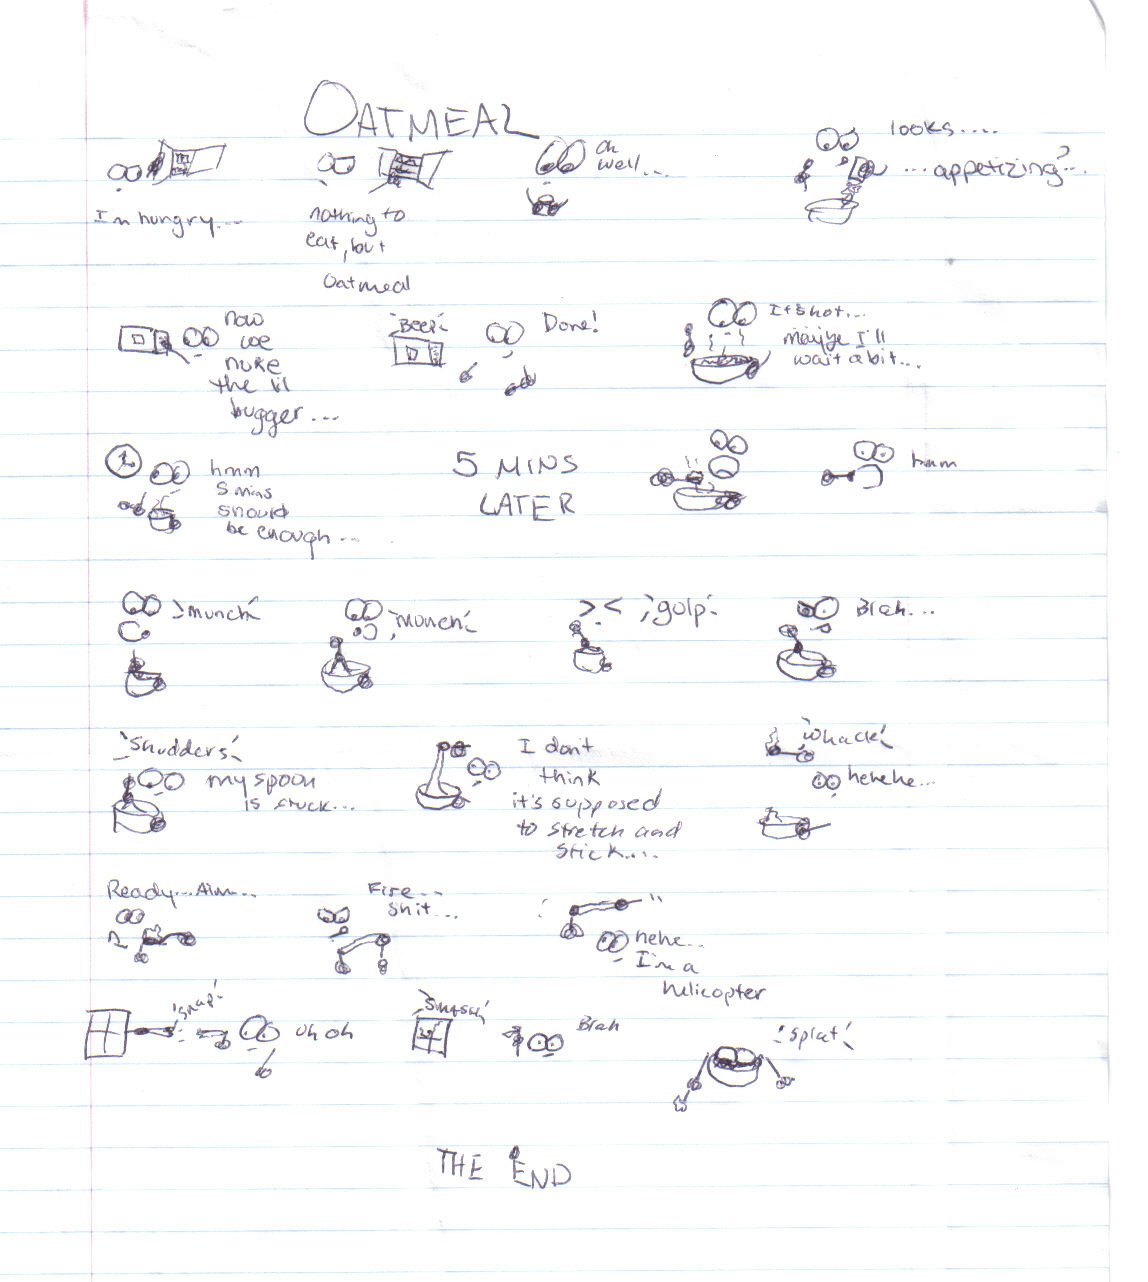 OATMEAL
I'm hungry...
nothing to
eat, but
Oatmeal
Oh
well...
looks....
...appetizing?...
now
we
nuke
the lil
bugger...
'Beep'
Done!
It's hot...
maybe I'll
wait a bit...
hmm
5 mins
should
be enough...
5 MINS
LATER
hmm
'munch'
'munch'
'gulp'
Blah...
'Shudders'
my spoon
is stuck...
I don't
think
it's supposed
to stretch and
stick....
'whack'
hehehe...
Ready...Aim...
Fire...
shit...
hehe...
I'm a
helicopter
'snap'
uh oh
'Smash'
Blah
'splat'
THE END